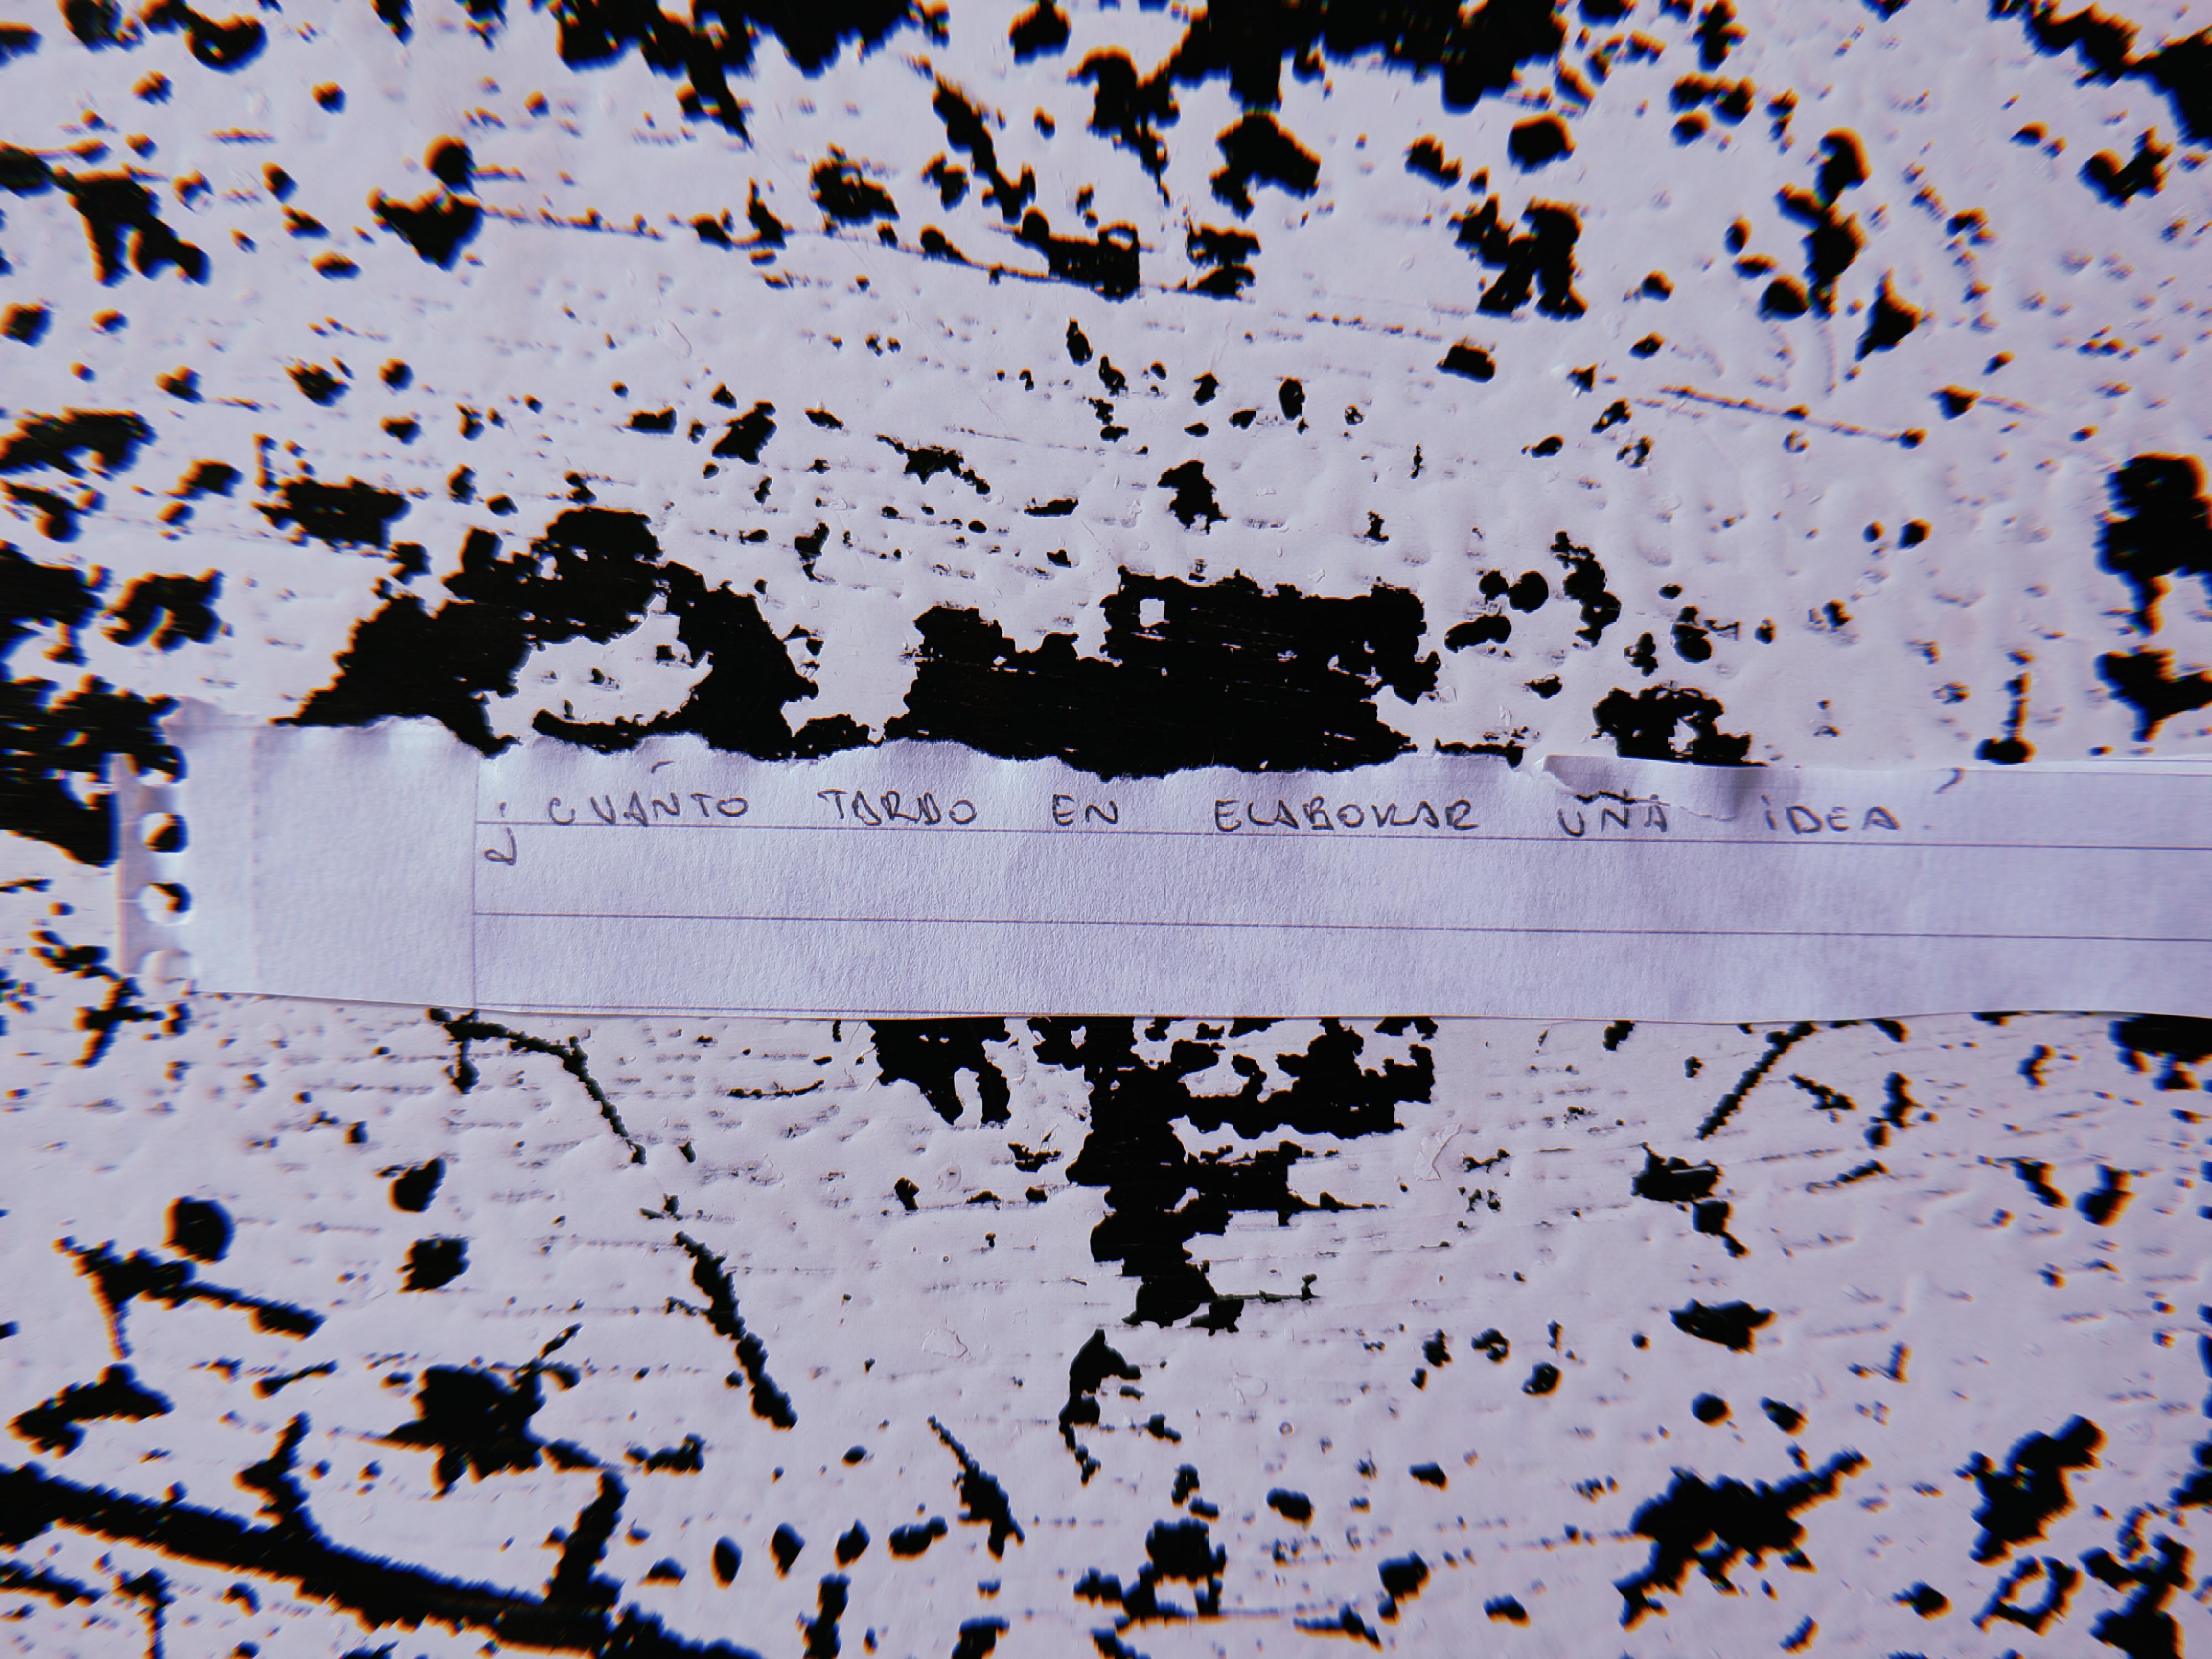 ¿CUÁNTO TARDO EN ELABORAR UNA IDEA?